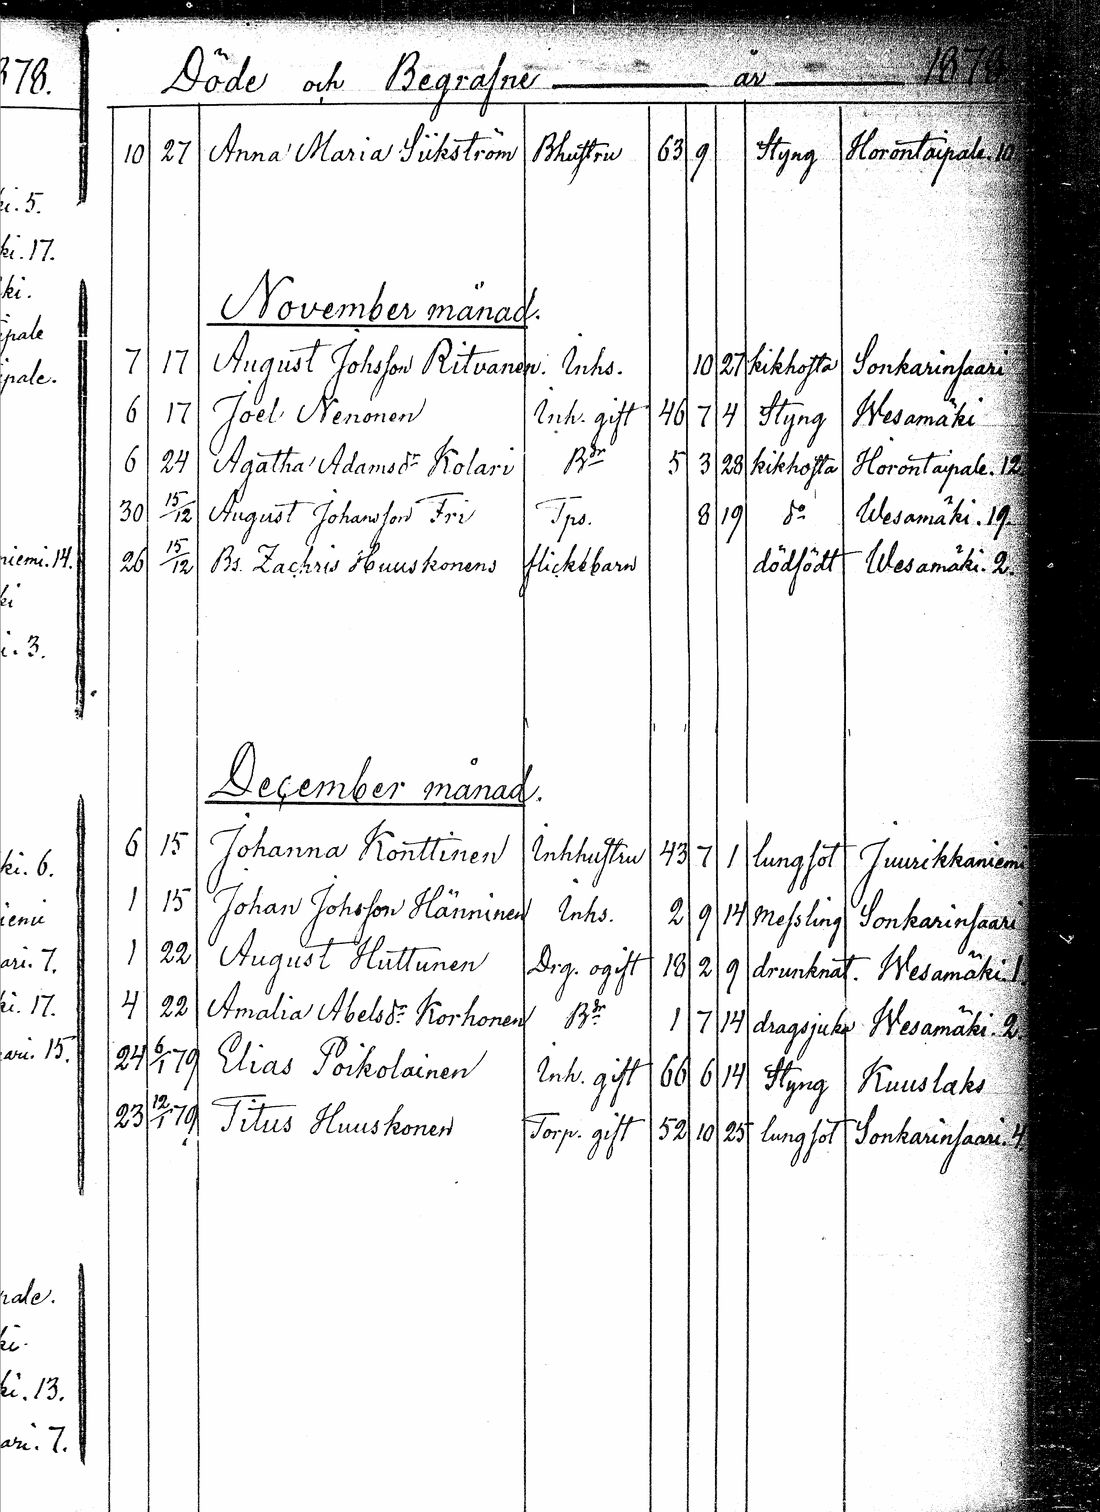 878.
Döde och Begrafne år 1878
10 27 Anna Maria Sükström Bhustru 63 9 Styng Horontaipale. 10
ki. 5.
ki. 17.
ki.
ipale
ipale.
November månad.
7 17 August Johsson Ritvanen. Inhs. 10 27 kikhosta Sonkarinsaari
6 17 Joel Nenonen Inh. gift 46 7 4 Styng Wesamäki
6 24 Agatha Adamsdr Kolari Bdr 5 3 28 kikhosta Horontaipale. 12
30 15/12 August Johansson Fri Tps. 8 19 do Wesamäki. 19.
26 15/12 Bs. Zachris Huuskonens flickebarn dödfödt Wesamäki. 2.
niemi. 14.
ki
i. 3.
December månad.
6 15 Johanna Konttinen Inhhustru 43 7 1 lungsot Juurikkaniemi
1 15 Johan Johsson Hänninen Inhs. 2 9 14 messling Sonkarinsaari
1 22 August Huttunen Drg. ogift 18 2 9 drunknat. Wesamäki. 1.
4 22 Amalia Abelsdr Korhonen Bdr 1 7 14 dragsjuka Wesamäki. 2.
24 6/1 79 Elias Poikolainen Inh. gift 66 6 14 Styng Kuuslaks
23 12/1 79 Titus Huuskonen Torp. gift 52 10 25 lungsot Sonkarinsaari. 4.
ki. 6.
iemi
ari. 7.
ki. 17.
ari. 15.
pale.
ki.
ki. 13.
ari. 7.